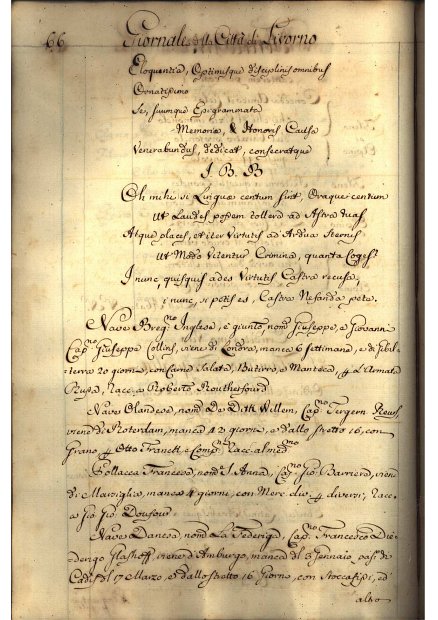 66 Giornale della Città di Livorno
Eloquentia, Optimisque disciplinis omnibus
Ornatissimo
Se, suumque Epigrammata
Memoria, & Honoris Causa
Venerabundus, dedicat, consecratque
I. B. B
Oh mihi si Linguæ centum sint, Oraque centum
Ut Laudes possem tollere ad Astra tuas,
Atque places, et iter Virtutis ad Ardua sternis
Ut Modo Vitentur Crimina, quanta Coges?
I nunc, quisquis ades Virtutis Castra recusa,
i nunc, si potis es, Castra Nefanda peta.
Nave Breg.no Inglese, è giunto, nom.o Giuseppe, e Giovanni
Cap.no Giuseppe Collins, viene di Londra, manca 6 settimane, e di
terra 20 giorni, con Carne Salata, Butirro, e Manteca, p
Russa, Racc. a Roberto Routherfourd
Nave Olandese, nom.o De Witt Willem, Cap.no
viene di Roterdam, manca 42 giorni, e dallo stretto 16, con
Grano p Otto Franck, e Comp. Racc. al med.mo
Pollacca Francese, nom.a S. Anna, Cap.no Gio: Barriera, viene
di Marsiglia, manca 4 giorni, con Merc. die p diversi, Racc.
a Gio Gio. Doufour
Nave Danese, nom.o La Federiga, Cap.no Francesco Die
derigo Glashoff, viene d'Amburgo, manca dal 3 Gennaio, pas.o di
Cadis il 17 Marzo, e dallo stretto 16 Giorni, con Stoccafissi, ed
altro